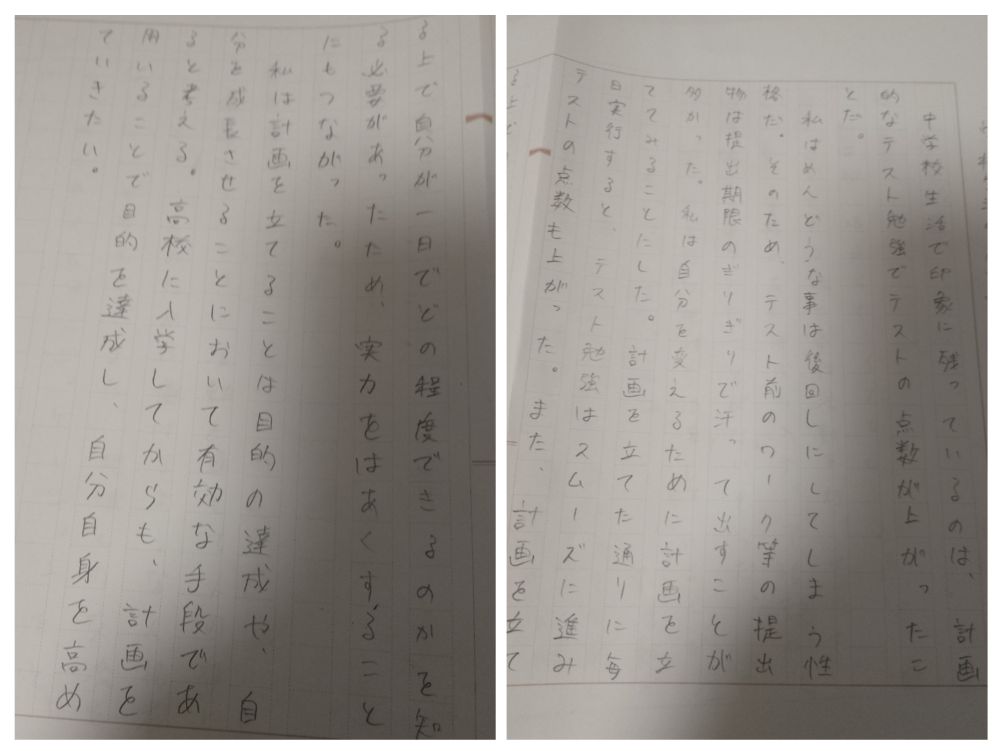 中学校生活で印象に残っているのは、計画
的なテスト勉強でテストの点数が上がったこ
とだ。
私はめんどうな事は後回しにしてしまう性
格だ。そのため、テスト前のワーク等の提出
物は提出期限のぎりぎりで汗って出すことが
多かった。私は自分を変えるために計画を立
ててみることにした。計画を立てた通りに毎
日実行すると、テスト勉強はスムーズに進み
テストの点数も上がった。また、計画を立て
る上で自分が一日でどの程度できるのかを知
る必要があったため、実力をはあくすること
にもつながった。
私は計画を立てることは目的の達成や、自
分を成長させることにおいて有効な手段であ
ると考える。高校に入学してからも、計画を
用いることで目的を達成し、自分自身を高め
ていきたい。